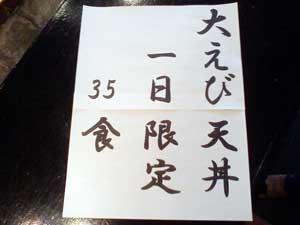 大えび天丼
一日限定
35食